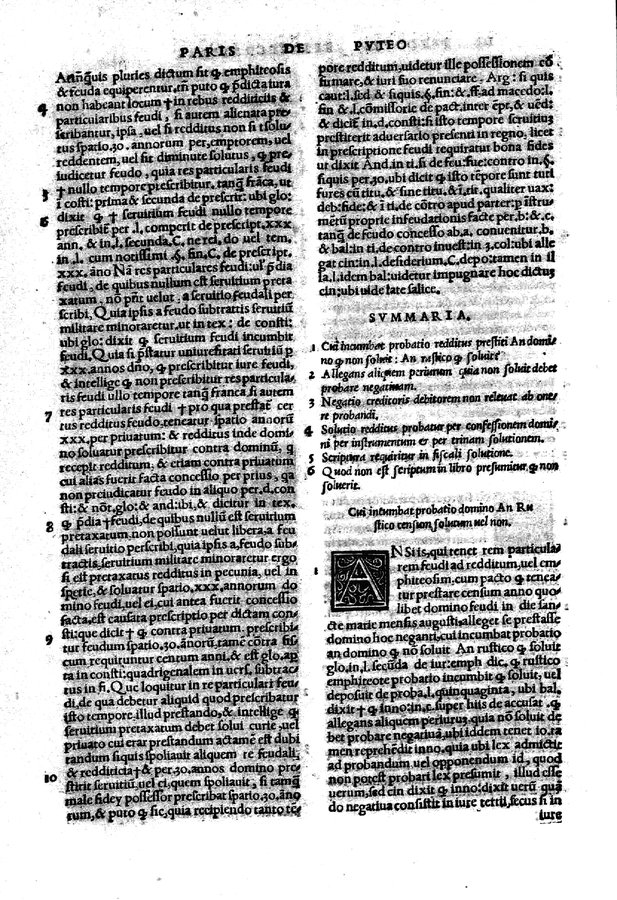 PARIS DE PVTEO
Antiquis pluries dictum sit ꝙ emphiteosis
& feuda equiperentur, tñ puto ꝙ p̃dicta iura
4 non habeant locum † in rebus redditiciis &
particularibus feudi, si autem alienata pre-
scribantur, ipsa, uel si redditus non sit solu-
tus spatio .30. annorum per emptorem, uel
reddentem, uel sit diminute solutus, ꝙ pre-
iudicetur feudo, quia res particularis feudi
5 † nullo tempore prescribitur, tanq̃ franca, ut
i costi: prima & secunda de prescrir: ubi glo:
6 dixit ꝙ † seruitium feudi nullo tempore
prescribit̃ per .l. comperit de prescript. xxx
ann. & in .l. secunda. C. ne rei. do uel tem.
in .l. cum notissimi .§. fin. C. de prescript.
xxx. ãno Nã res particulares feudi: ul' p̃dia
feudi, de quibus nullum est seruitium preta
xatum, nõ pñt uelut, a seruitio feudali per
scribi, Quia ipsis a feudo subtrattis seruitiũ
militare minoraretur, ut in tex: de consti:
ubi glo: dixit ꝙ seruitium feudi incumbit
feudi. Quia si p̃statur uniuersitati seruitiũ p
xxx. annos dño, ꝙ prescribitur iure feudi,
& intellige ꝙ non prescribitur res particula
ris feudi ullo tempore tanq̃ franca. si autem
7 res particularis feudi † pro qua prestat̃ cer
tus redditus feudo, teneatur spatio annorũ
xxx. per priuatum: & redditus inde domi-
no soluatur prescribitur contra dominũ, q
recepit redditum, & etiam contra priuatum
cui alias fuerit facta concessio per prius, qa
non preiudicatur feudo in aliquo per .d. con
sti: & nõt. glo: & and: ibi, & dicitur in tex.
8 ꝙ p̃dia † feudi, de quibus nullũ est seruitium
pretaxatum, non possunt uelut libera, a feu
dali seruitio perscribi, quia ipsis a, feudo sub-
tractis, seruitium militare minoraretur ergo
si est pretaxatus redditus in pecunia, uel in
spetie, & soluatur spatio .xxx. annorum do
mino feudi, uel ei, cui antea fuerit concessio
facta, est causata prescriptio per dictam con-
sti: que dicit † ꝙ contra priuatum prescribi
9 tur feudum spatio .30. ãnorũ. tamẽ cõtra fis
cum requiruntur centum anni. & est glo. ap
ta in consti: quadrigenalem in uer. subtrac-
tus in fi. Quę loquitur in re particulari feu
di, de qua debetur aliquid quod prescribatur
isto tempore, illud prestando, & intellige ꝙ
seruitium pretaxatum debet solui curie, uel
priuato cui erat prestandum ac tamẽ est dubi
tandum si quis spoliauit aliquem re feudali,
10 & redditicia † & per .30. annos domino pre-
stitit seruitiũ, uel ei, quem spoliauit, si tamq̃
male fidey possessor prescribat spatio .30. ãno
rum, & puto ꝙ sic, quia recipiendo tanto te-
pore redditum, uidetur ille possessionem cõ
firmare, & iuri suo renunciare. Arg: si quis
caut: l. sed & si quis .§. fin: & .ff. ad macedo: l.
fin & .l. cõmissorie de pact. inter ẽpt̃. & uẽd:
& dicit̃ in .d. consti: si isto tempore seruitium
prestiterit aduersario presenti in regno, licet
in prescriptione feudi requiratur bona fides
ut dixit And. in ti. si de feu: fue: contro in .§.
siquis per .30. ubi dicit ꝙ isto tẽpore sunt tuti
fures cũ titu. & sine titu. & ĩ. tit. qualiter uax:
deb: fide: & i ti. de cõtro apud parter: p ĩstru-
mẽtũ proprie infeudationis facte per: b: & c.
tanq̃ de feudo concesso ab, a. conuenitur .b.
& bal: in ti. de contro inuest: in 3. col: ubi alle
gat cin: in .l. desiderium. C. depo: tamen in il
la .l. idem bal: uidetur impugnare hoc dictũ
cin: ubi uide late salice.
SVMMARIA.
1 Cui incumbat probatio redditus prestiti An domi-
no ꝙ non soluit: An rustico ꝙ soluerit
2 Allegans aliquem periurum quia non soluit debet
probare negatiuam.
3 Negatio creditoris debitorem non releuat ab one
re probandi.
4 Solutio redditus probatur per confessionem domi-
ni per instrumentum et per trinam solutionem.
5 Scriptura requiritur in fiscali solutione.
6 Quod non est scriptum in libro presumitur, ꝙ non
soluerit.
Cui intumbat probatio domino An Ru
stico censum solutum uel non.
1 AN Sîis, qui tenet rem particula-
rem feudi ad redditum, uel em-
phiteosim, cum pacto ꝙ tenea-
tur prestare censum anno quo-
libet domino feudi in die san-
cte marie mensis augusti alleget se prestasse
domino hoc neganti, cui incumbat probatio
an domino ꝙ nõ soluit An rustico ꝙ soluit
glo, in .l. secũda de iur: emph dic, ꝙ rustico
emphiteote probatio incumbit ꝙ soluit, uel
deposuit de proba. l. quinquaginta, ubi bal.
dixit † ꝙ inno: in .c. super hiis de accusat .ꝙ
allegans aliquem periurus, quia nõ soluit de
bet probare negatiuã, ubi idem tenet io. ra
men reprehẽdit inno. quia ubi lex admictit
ad probandum uel opponendum id, quod
non potest probari lex presumit, illud esse
uerum, sed cin dixit ꝙ inno: dixit uerũ quã
do negatiua consistit in iure tertii, secus si in
iure